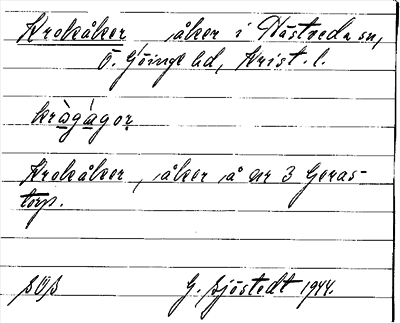 Krokåker åker i Hästveda sn,
Ö. Göinge hd, Krist. l.
kràgágor
Krokåker, åker å nr 3 Geras-
torp.
SOS
G. Sjöstedt 1944.